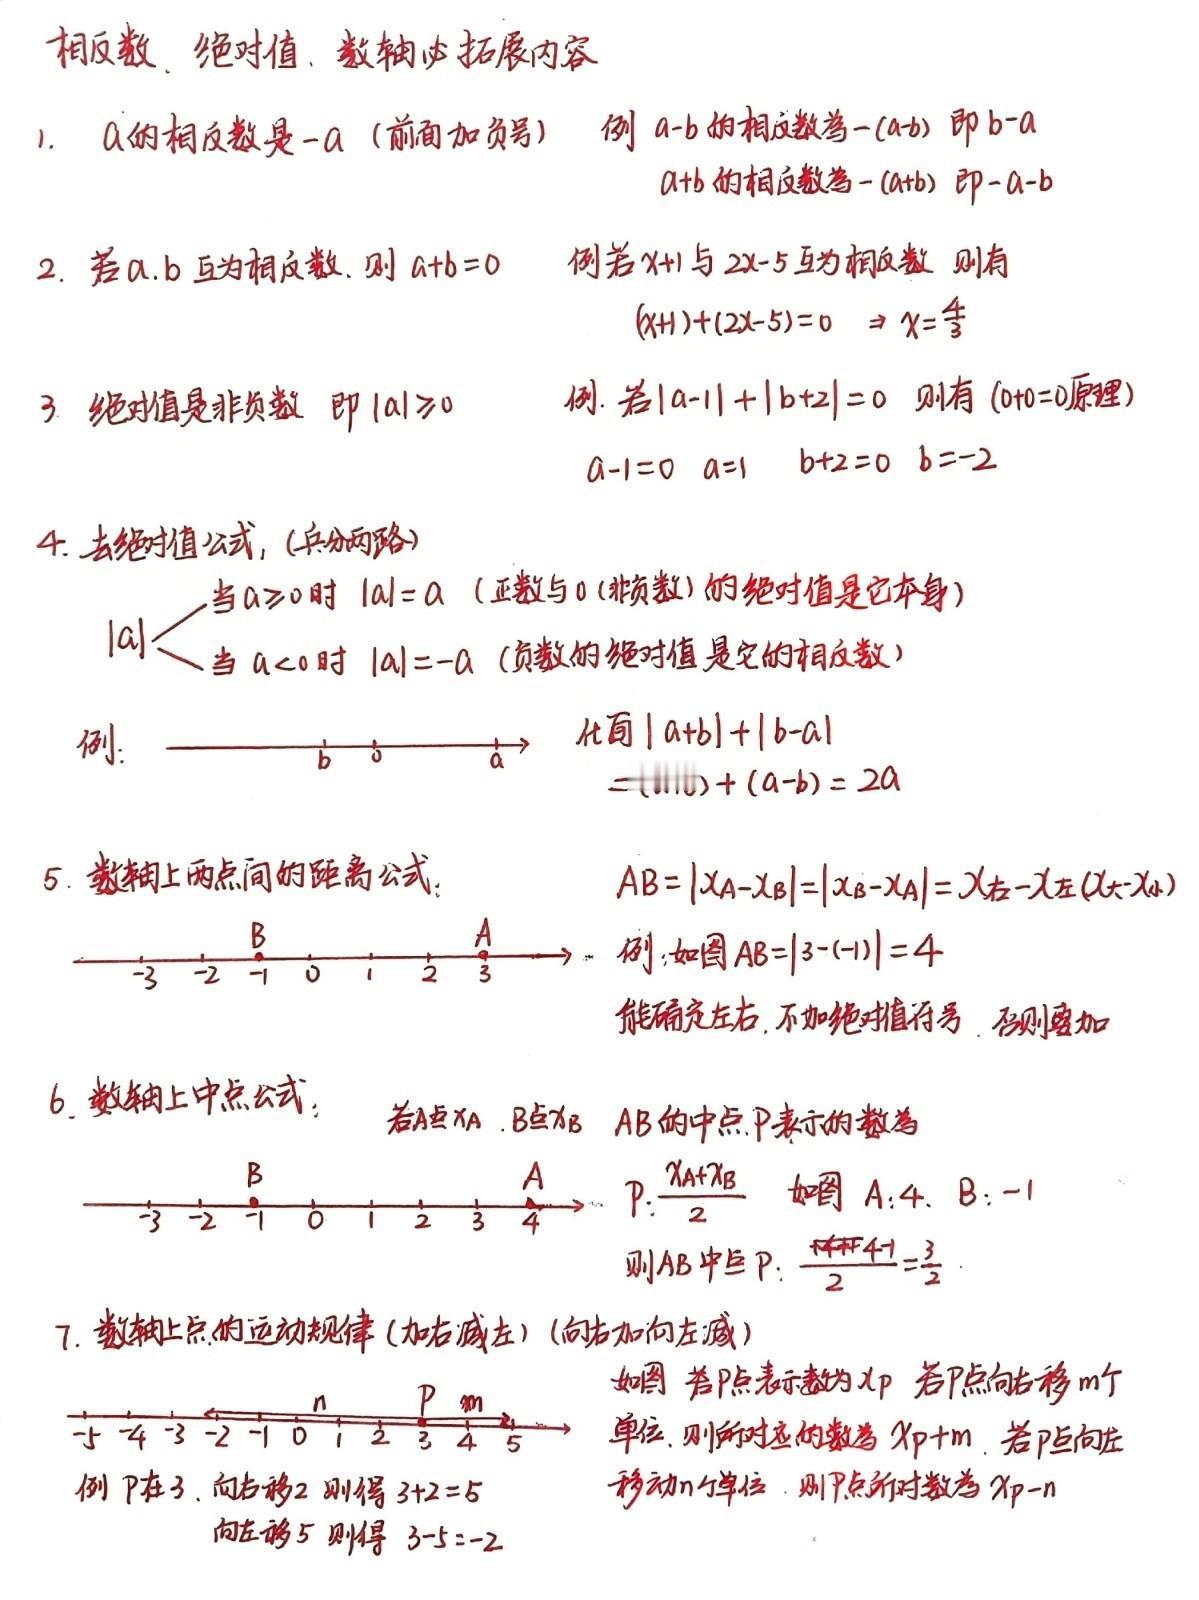 相反数、绝对值、数轴必拓展内容
1. a的相反数是-a（前面加负号） 例 a-b的相反数为-(a-b) 即b-a
a+b的相反数为-(a+b) 即-a-b
2. 若a.b互为相反数、则 a+b=0 例若x+1与2x-5互为相反数 则有
(x+1)+(2x-5)=0 ⇒ x=4/3
3 绝对值是非负数 即|a|≥0 例.若|a-1|+|b+2|=0 则有(0+0=0原理)
a-1=0 a=1 b+2=0 b=-2
4. 去绝对值公式，(兵分两路)
当a≥0时 |a|=a （正数与0(非负数)的绝对值是它本身）
|a|
当a<0时 |a|=-a （负数的绝对值是它的相反数）
例: b 0 a 化简|a+b|+|b-a|
= + (a-b) = 2a
5. 数轴上两点间的距离公式: AB=|xA-xB|=|xB-xA|=x右-x左(x大-x小)
B A
-3 -2 -1 0 1 2 3 例:如图AB=|3-(-1)|=4
能确定左右.不加绝对值符号.否则要加
6. 数轴上中点公式: 若A点xA.B点xB AB的中点P表示的数为
B A P: xA+xB/2 如图 A:4. B:-1
-3 -2 -1 0 1 2 3 4
则AB中点P: 4-1/2=3/2.
7. 数轴上点的运动规律(加右减左)(向右加向左减)
n P m 如图 若P点表示数为xp 若P点向右移m个
-5 -4 -3 -2 -1 0 1 2 3 4 5 单位.则所对应的数为xp+m.若P点向左
例 P在3、向右移2 则得 3+2=5 移动n个单位.则P点所对数为xp-n
向左移5 则得 3-5=-2